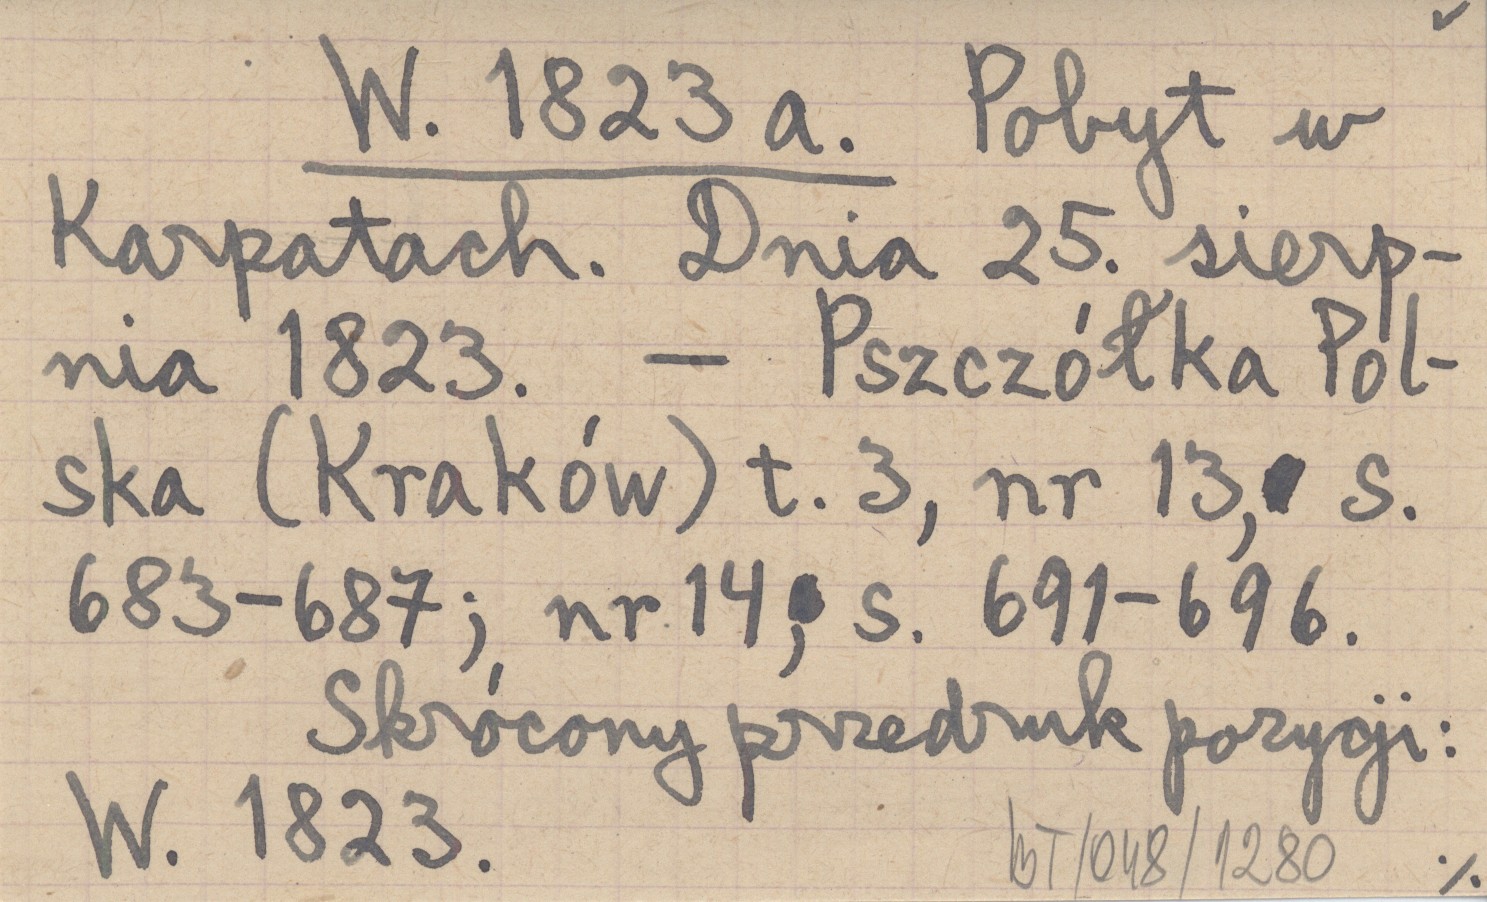 W. 1823 a. Pobyt w
Karpatach. Dnia 25. sierp-
nia 1823. — Pszczółka Pol-
ska (Kraków) t. 3, nr 13, s.
683-687; nr 14, s. 691-696.
Skrócony przedruk pozycji:
W. 1823.
BT/048/1280
./.